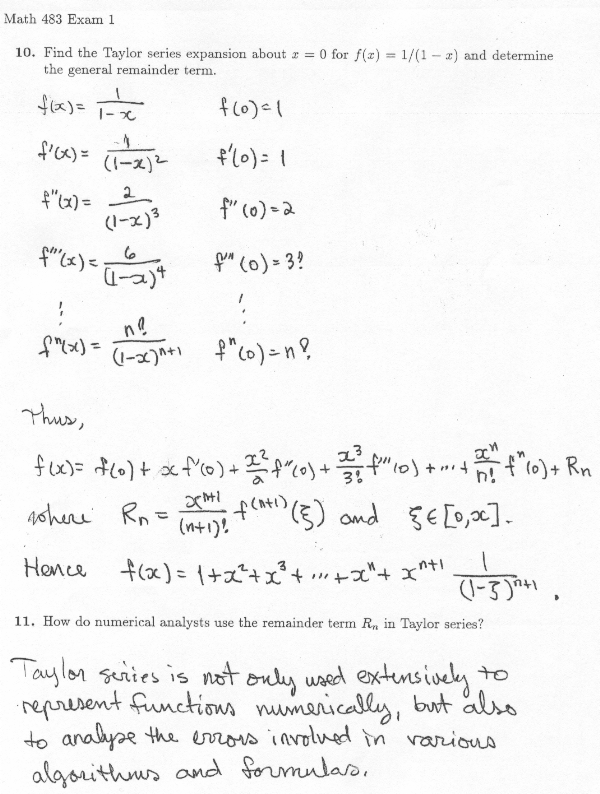 Math 483 Exam 1
10. Find the Taylor series expansion about x = 0 for f(x) = 1/(1 − x) and determine
the general remainder term.
f(x) = 1/(1-x)    f(0) = 1
f'(x) = 1/(1-x)^2    f'(0) = 1
f''(x) = 2/(1-x)^3    f''(0) = 2
f'''(x) = 6/(1-x)^4    f'''(0) = 3!
⋮    ⋮
f^n(x) = n!/(1-x)^{n+1}    f^n(0) = n!
Thus,
f(x) = f(0) + x f'(0) + x^2/2 f''(0) + x^3/3! f'''(0) + ... + x^n/n! f^n(0) + Rn
where Rn = x^{n+1}/(n+1)! f^{(n+1)}(ξ) and ξ ∈ [0,x].
Hence f(x) = 1 + x^2 + x^3 + ... + x^n + x^{n+1} 1/(1-ξ)^{n+1}.
11. How do numerical analysts use the remainder term Rn in Taylor series?
Taylor series is not only used extensively to
represent functions numerically, but also
to analyze the errors involved in various
algorithms and formulas.